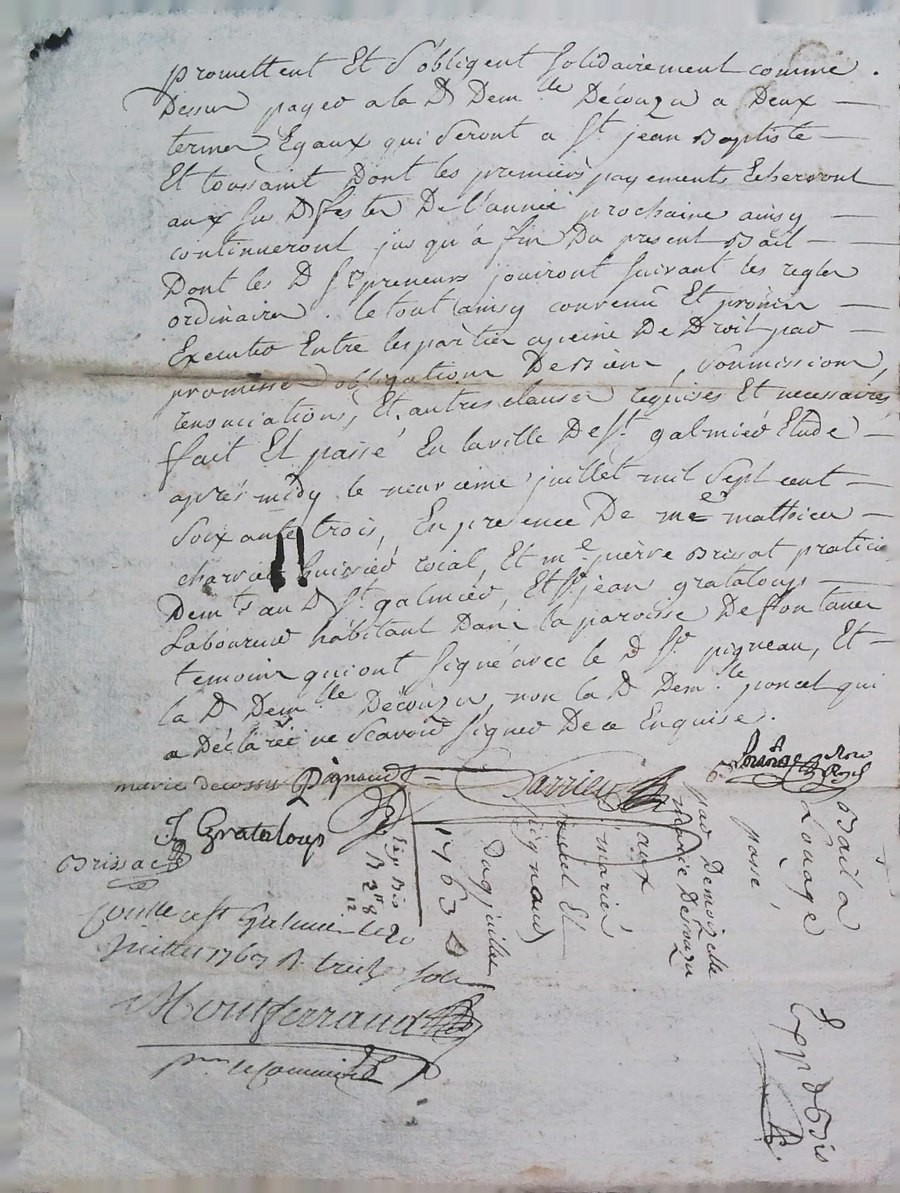 promettent Et s'obligent solidairement comme
Dessus payer a la D Dem.lle Découzu a Deux
termes Egaux qui seront a St jean Baptiste
Et toussaint Dont les premiers payements Echerront
aux su D festes De l'année prochaine ainsy
continueront jus qu'à fin Du present Bail
Dont les D Srs preneurs jouiront suivant les regles
ordinaires. le tout ainsy convenu Et promis
Executer Entre les parties apeine De Droit par
promesses obligations De Biens, soumissions,
renonciations, Et autres clauses requises Et necessaires
fait Et passé En la ville De St galmier Etude
après midy le neuvieme juillet mil sept cent
soixante trois, En presence De me mathieu
huissier roial, Et me pierre Brissat praticien
Dem.ts au D St galmier, Et Sr jean grataloup
Laboureur habitant Dans la paroisse De fontanes
temoins qui ont signé avec le D Sr pigneau, Et
la D Dem.lle Découzu, non la D Dem.lle poncet qui
a Déclaré ne scavoir signer De ce Enquise.
marie decossu Pignaud Larrieu
J Grataloup
Brissac
Conllé a St Galmier le 20
juillet 1763 R treize sols
Montferrand
Bail a
Louage
passé,
par Demoiselle
marie Decouzu
aux
mariés
poncet Et
pignaud
Du 9 juillet
1763
Exp d Bis